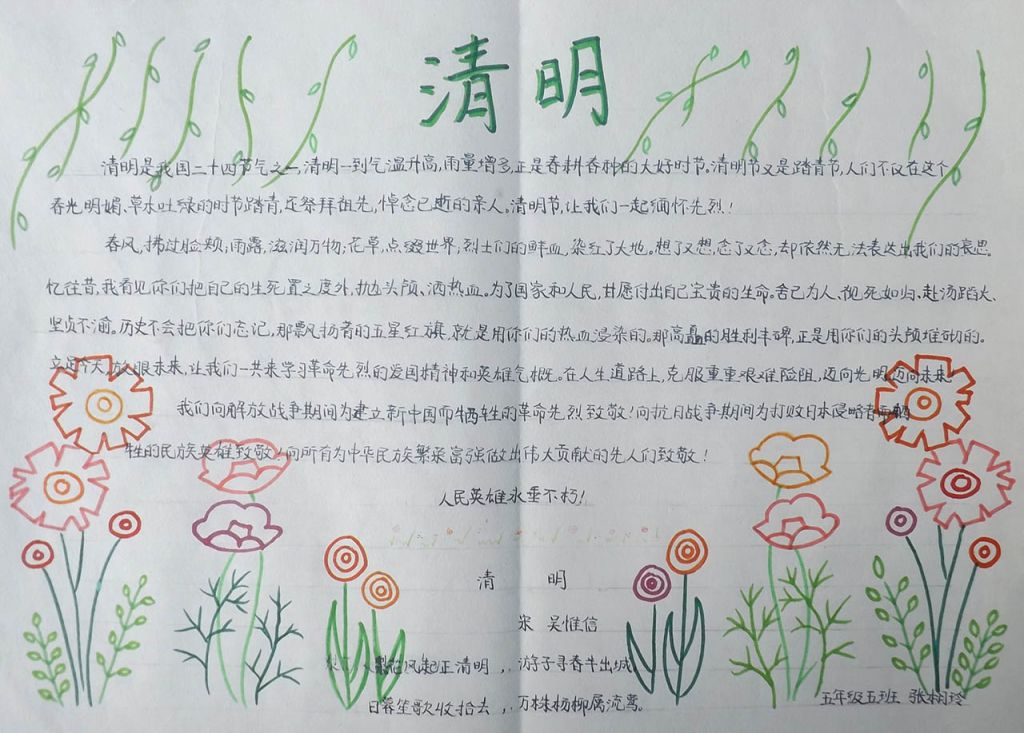 清明
清明是我国二十四节气之一,清明一到气温升高,雨量增多,正是春耕春种的大好时节。清明节又是踏青节,人们不仅在这个
春光明媚、草木吐绿的时节踏青,还祭拜祖先,悼念已逝的亲人。清明节,让我们一起缅怀先烈!
春风,拂过脸颊;雨露,滋润万物;花草,点缀世界;烈士们的鲜血,染红了大地。想了又想,念了又念,却依然无法表达出我们的哀思。
忆往昔,我看见你们把自己的生死置之度外,抛头颅、洒热血。为了国家和人民,甘愿付出自己宝贵的生命。舍己为人、视死如归、赴汤蹈火、
坚贞不渝。历史不会把你们忘记,那飘扬着的五星红旗,就是用你们的热血浸染的。那高矗的胜利丰碑,正是用你们的头颅堆砌的。
立足今天,放眼未来,让我们一共来学习革命先烈的爱国精神和英雄气概。在人生道路上,克服重重艰难险阻,迈向光明,迈向未来
我们向解放战争期间为建立新中国而牺牲的革命先烈致敬!向抗日战争期间为打败日本侵略者而牺
牲的民族英雄致敬!向所有为中华民族繁荣富强做出伟大贡献的先人们致敬!
人民英雄永垂不朽!
清 明
宋 吴惟信
花风起正清明,游子寻春半出城。
日暮笙歌收拾去,万株杨柳属流莺。
五年级五班 张栩玲